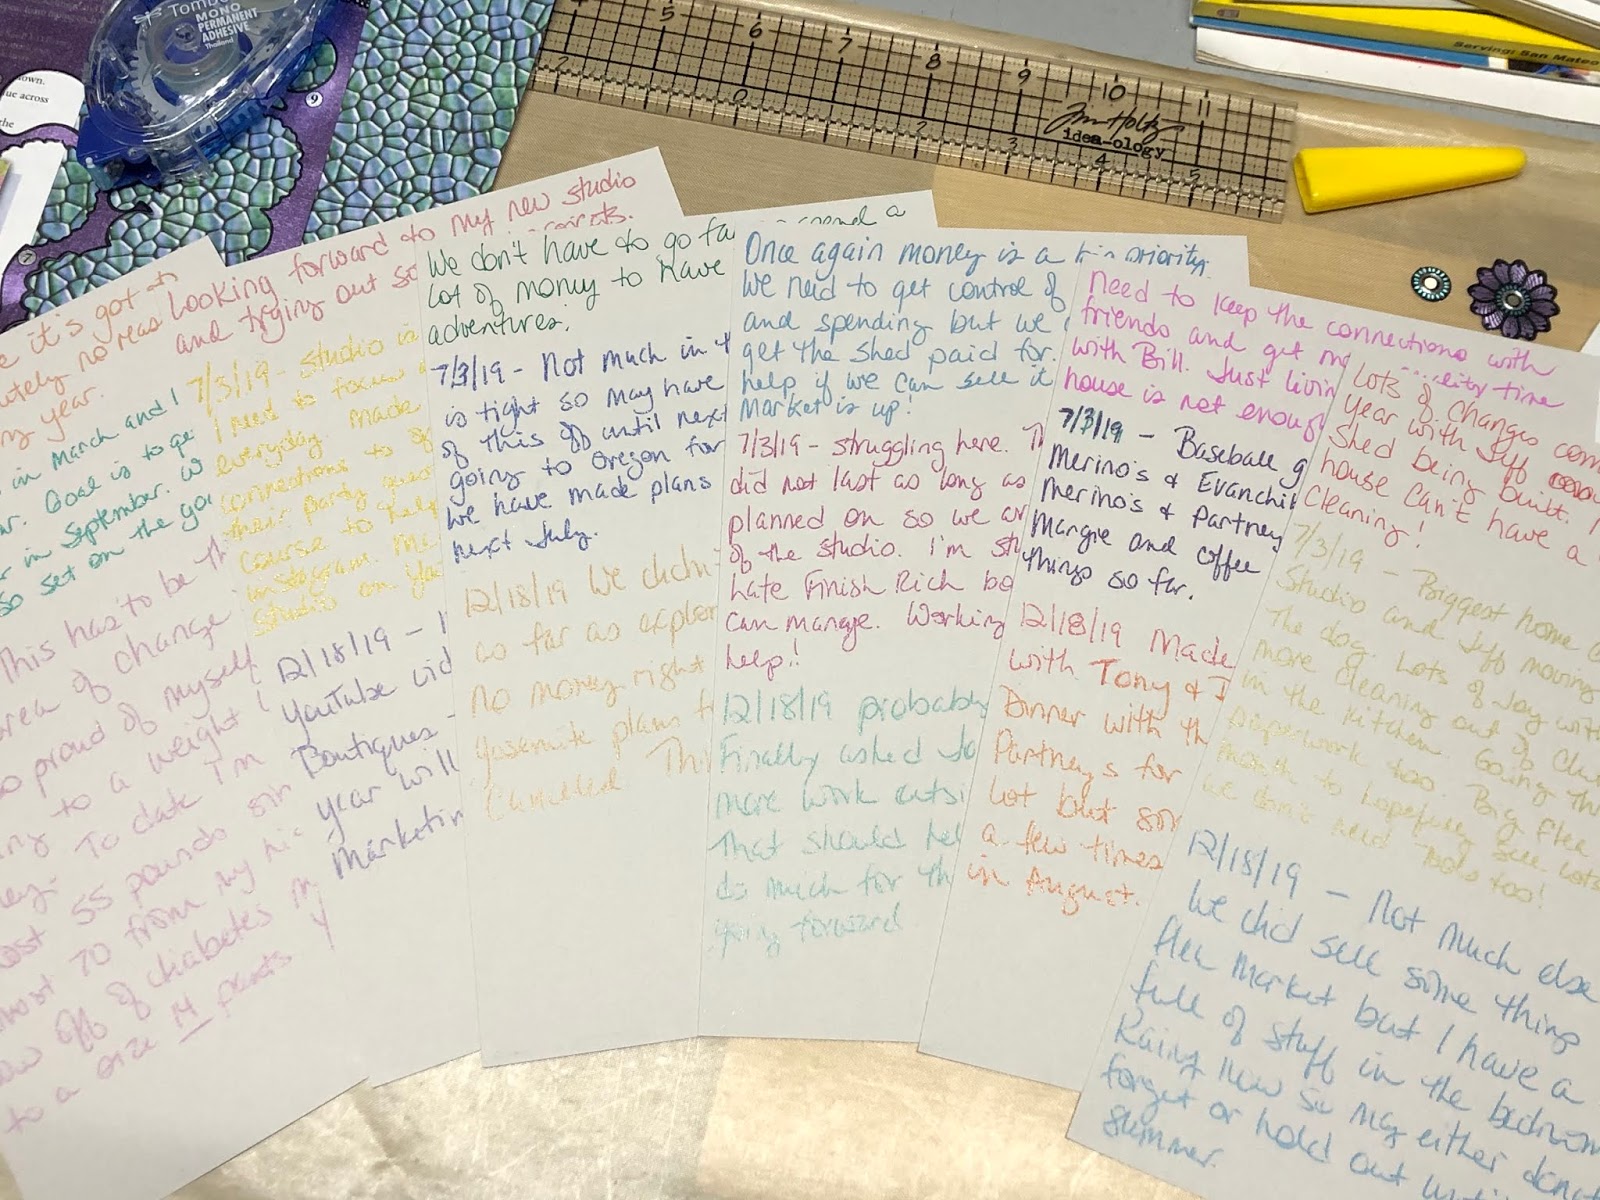 Tombow
MONO
PERMANENT
ADHESIVE
Thailand
own.
ue across
the
9
7
5
6
7
8
9
10
11
2
0
2
3
4
5
Tim Holtz
idea-ology
Serving: San Mateo
e it's got
utely no reas
ng year.
in March and I
ar. Goal is to ge
r in September. W
so set on the goa
This has to be th
area of change
so proud of myself
ing to a weight
ney. To date I'm
ost 55 pounds sin
most 70 from my hi
ow off of diabetes m
to a size 14 pants
Looking forward to my new studio
and trying out so
7/3/19 - Studio is
I need to focus
everyday. Made
connections to
their party gues
course to help
instagram. Me
Studio on you
12/18/19 - I
YouTube vid
Boutiques -
year will
Marketin
We don't have to go fa spend a
Lot of money to have
adventures.
7/3/19 - Not much in t
is tight so may have
of this off until next
going to Oregon for
we have made plans
next July.
12/18/19 We didn't
so far as explor
no money right
Yosemite plans f
Cancelled. Thi
Once again money is a priority.
We need to get control of
and spending but we
get the shed paid for.
help if we can sell it
Market is up!
7/3/19 - struggling here. T
did not last as long as
planned on so we ar
of the studio. I'm st
Late Finish Rich bo
can manage. Working
help!!
12/18/19 probably
Finally asked Jo
more work outsi
That should hel
do much for th
going forward
Need to keep the connections with
friends and get m quality time
with Bill. Just livin
house is not enoug
7/3/19 - Baseball g
Merino's & Evanchi
Merino's & Partney
Margie and coffee
things so far.
12/18/19 Made
with Tony & I
Dinner with th
Partneys for
lot but som
a few times
in August.
Lots of changes com
year with Jeff
shed being built.
house can't have a
Cleaning!
7/3/19 - Biggest home c
Studio and Jeff moving
The dog. Lots of Joy with
more cleaning out of clu
in the kitchen. Going th
paperwork too. Big flea
month to hopefully sell lots
we don't need Tools too!
12/18/19 - Not much else
We did sell some thing
flea market but I have a
full of stuff in the bedroom
Rainy now so may either dona
forget or hold out until
summer.